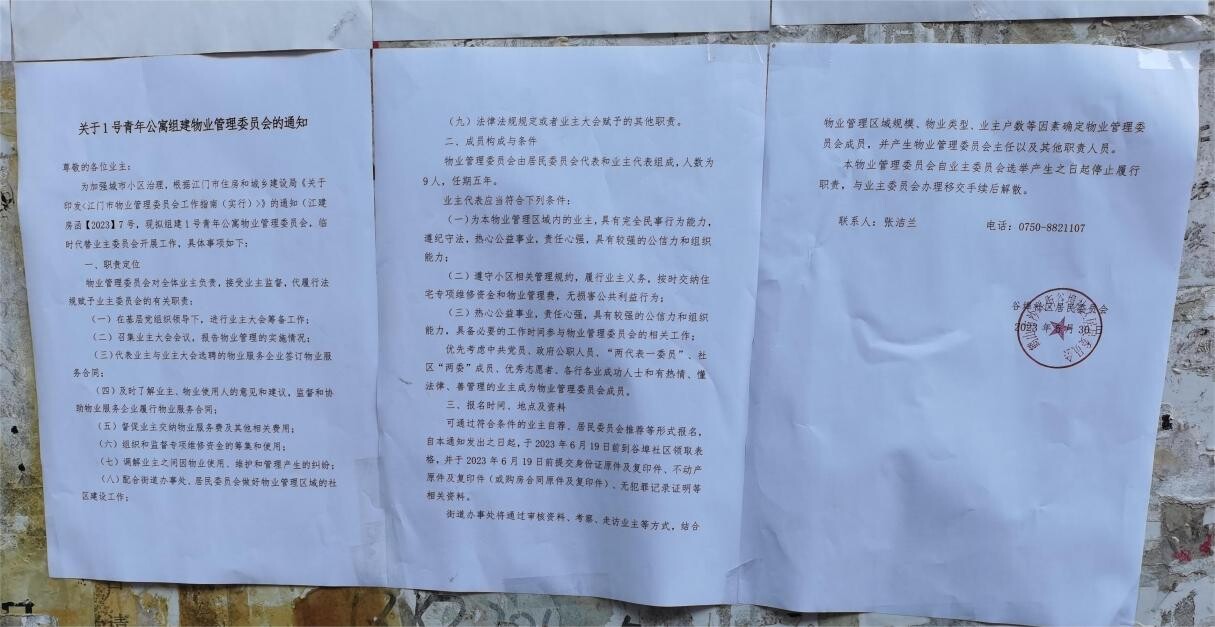 关于1号青年公寓组建物业管理委员会的通知
尊敬的各位业主：
为加强城市小区治理，根据江门市住房和城乡建设局《关于
印发<江门市物业管理委员会工作指南（实行）>》的通知（江建
房函【2023】7号，现拟组建1号青年公寓物业管理委员会，临
时代替业主委员会开展工作，具体事项如下；
一、职责定位
物业管理委员会对全体业主负责，接受业主监督，代履行法
规赋予业主委员会的有关职责；
（一）在基层党组织领导下，进行业主大会筹备工作；
（二）召集业主大会会议，报告物业管理的实施情况；
（三）代表业主与业主大会选聘的物业服务企业签订物业服
务合同；
（四）及时了解业主、物业使用人的意见和建议，监督和协
助物业服务企业履行物业服务合同；
（五）督促业主交纳物业服务费及其他相关费用；
（六）组织和监督专项维修资金的筹集和使用；
（七）调解业主之间因物业使用、维护和管理产生的纠纷；
（八）配合街道办事处、居民委员会做好物业管理区域的社
区建设工作；
（九）法律法规规定或者业主大会赋予的其他职责。
二、成员构成与条件
物业管理委员会由居民委员会代表和业主代表组成，人数为
9人，任期五年。
业主代表应当符合下列条件：
（一）为本物业管理区域内的业主，具有完全民事行为能力，
遵纪守法，热心公益事业，责任心强，具有较强的公信力和组织
能力；
（二）遵守小区相关管理规约，履行业主义务，按时交纳住
宅专项维修资金和物业管理费，无损害公共利益行为；
（三）热心公益事业，责任心强，具有较强的公信力和组织
能力，具备必要的工作时间参与物业管理委员会的相关工作；
优先考虑中共党员、政府公职人员、“两代表一委员”、社
区“两委”成员、优秀志愿者、各行各业成功人士和有热情、懂
法律、善管理的业主成为物业管理委员会成员。
三、报名时间、地点及资料
可通过符合条件的业主自荐、居民委员会推荐等形式报名，
自本通知发出之日起，于2023年6月19日前到谷埠社区领取表
格，并于2023年6月19日前提交身份证原件及复印件、不动产
原件及复印件（或购房合同原件及复印件）、无犯罪记录证明等
相关资料。
街道办事处将通过审核资料、考察、走访业主等方式，结合
物业管理区域规模、物业类型、业主户数等因素确定物业管理委
员会成员，并产生物业管理委员会主任以及其他职责人员。
本物业管理委员会自业主委员会选举产生之日起停止履行
职责，与业主委员会办理移交手续后解散。
联系人：张洁兰 电话：0750-8821107
谷埠社区居民委员会
2023年5月30